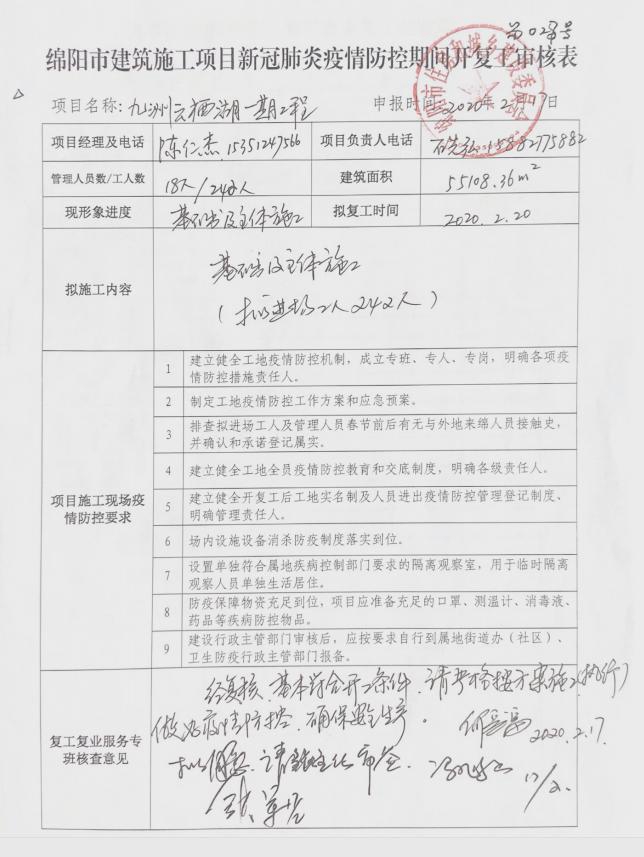 第028号
绵阳市建筑施工项目新冠肺炎疫情防控期间开复工审核表
项目名称:九洲云栖湖一期工程 申报时间:2020年2月17日
项目经理及电话 陈仁杰 15351247566 项目负责人电话 15882775882
管理人员数/工人数 18人/242人 建筑面积 55108.36m²
现形象进度 基础及主体施工 拟复工时间 2020.2.20
拟施工内容
基础及主体施工
(拟进场工人242人)
项目施工现场疫情防控要求
1 建立健全工地疫情防控机制，成立专班、专人、专岗，明确各项疫
情防控措施责任人。
2 制定工地疫情防控工作方案和应急预案。
3 排查拟进场工人及管理人员春节前后有无与外地来绵人员接触史，
并确认和承诺登记属实。
4 建立健全工地全员疫情防控教育和交底制度，明确各级责任人。
5 建立健全开复工后工地实名制及人员进出疫情防控管理登记制度、
明确管理责任人。
6 场内设施设备消杀防疫制度落实到位。
7 设置单独符合属地疾病控制部门要求的隔离观察室，用于临时隔离
观察人员单独生活居住。
8 防疫保障物资充足到位，项目应准备充足的口罩、测温计、消毒液、
药品等疾病防控物品。
9 建设行政主管部门审核后，应按要求自行到属地街道办（社区）、
卫生防疫行政主管部门报备。
复工复业服务专班核查意见
经复核，基本符合开工条件，请严格按方案施工(执行)
做好疫情防控，确保安全生产。 2020.2.17.
拟同意，请 审签。 17/2.